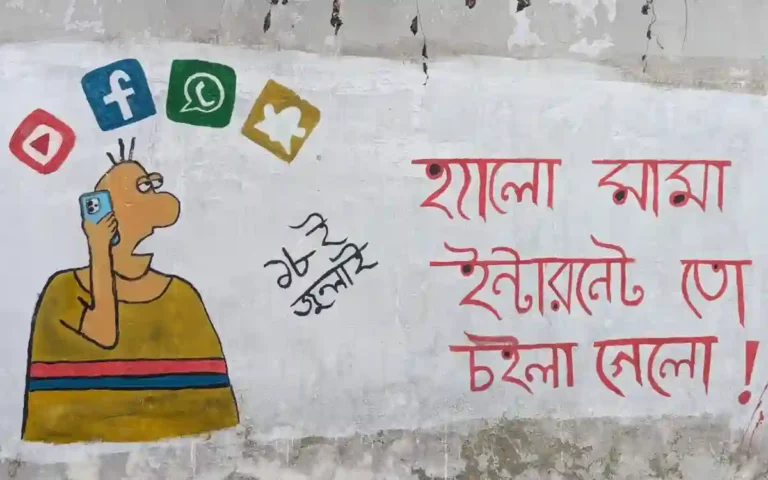 ১৮ই
জুলাই
হ্যালো মামা
ইন্টারনেট তো
চইলা গেলো!